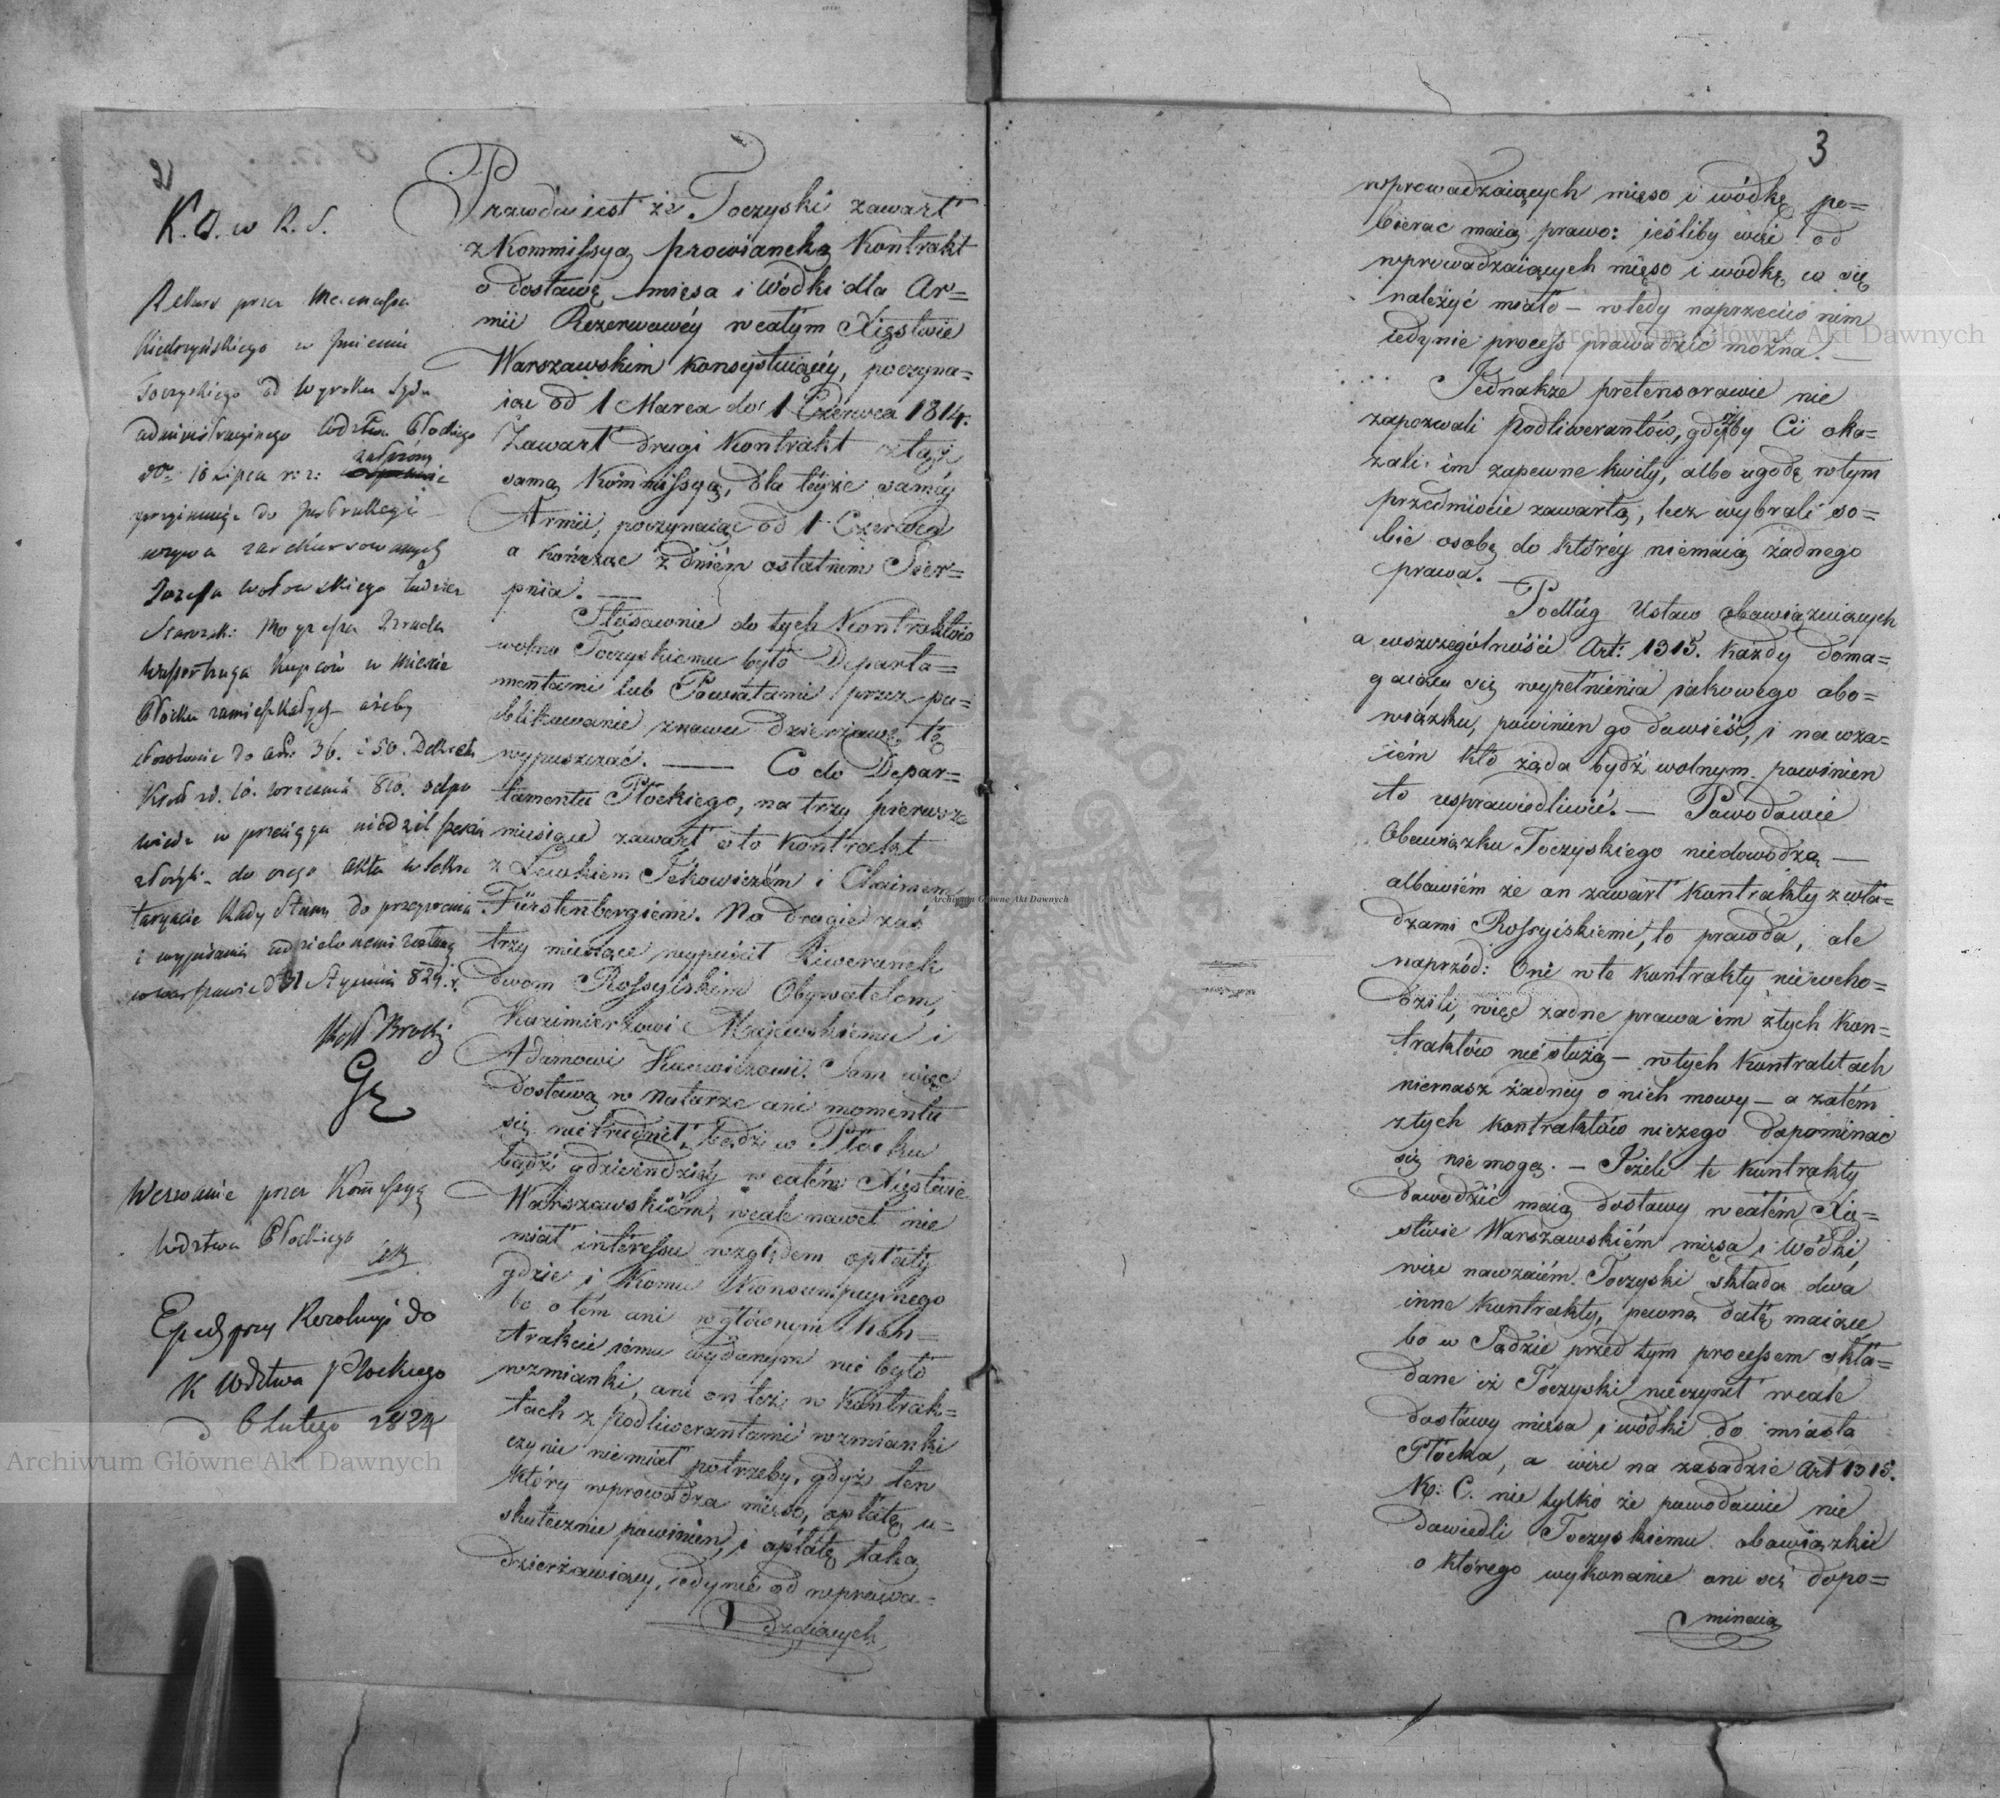 2
K. D. w R. S.
Rekurs przez Mecenasa
Kiedrzyńskiego w Imieniu
Toczyskiego od Wyroku Sądu
administracyinego Wdztwa Płockiego
dto 10 Lipca r: z: zaszłego
przyimuje do Instrukcyi
wzywa zarekursowanych
Józefa Wołowskiego tudzież
Starozak: Moyżesza
kupców w Mieście
Płocku zamieszkałych ażeby
stosownie do art: 36. i 50. Dekretu
Król: z d. 16. Września 810. odpo
wiedź w przeciągu niedziel sześciu
złożyli do czego akta w Sekre
taryacie Rady Stanu do przeyrzenia
i wypisania udzielonemi zostaną
w Warszawie d 31 Stycznia 824. r.
Brocki
Wezwanie przez Kommissyą
Wdztwa Płockiego
Exped przy Rezolucyi do
K Wdztwa Płockiego
d 6 Lutego 1824
Prawdą iest że Toczyski zawarł
z Kommissyą prowiancką Kontrakt
o dostawę mięsa i Wódki dla Ar=
mii Rezerwowéy w całym Xięstwie
Warszawskim konsystuiącéy, poczyna=
iąc od 1 Marca do 1 Czerwca 1814.
Zawarł drugi Kontrakt z tąż
samą Kommissyą, dla teyże saméy
Armii, poczynaiąc od 1 Czerwca
a kończąc z dniém ostatnim Sier=
pnia. —
Stósownie do tych Kontraktów
wolno Toczyskiemu było Departa=
mentami lub Powiatami przez pu=
blikowanie znowu dzierżawę tę
wypuszczać. — Co do Depar=
tamentu Płóckiego, na trzy pierwsze
miesiące zawarł o to Kontrakt
z Lewkiem Jekowiczém i Chaimem
Fürstenbergiem. Na drugie zaś
trzy miesiące wypuścił Liwerunek
dwom Rossyiskim Obywatelom,
Kazimierzowi Majewskiemu i
Adamowi Sam więc
dostawą w naturze ani momentu
się nie trudnił, bądź w Płocku
bądź gdzieindziéy w całém Xięstwie
Warszawskiém, wcale nawet nie
miał interessu względem opłaty
gdzie i Komu Konsumpcyinego
bo o tém ani w głównym Kon=
trakcie iemu wydanym nie było
wzmianki, ani on też w Kontrak=
tach z podliwerantami wzmianki
czynić niemiał potrzeby, gdyż ten
który wprowadza mięso, opłatę u=
skutecznić powinien, i opłatę taką
dzierżawiący, iedynie od wprowa=
dzaiących
3
wprowadzaiących mięso i wódkę po=
bierać maią prawo: ieśliby więc od
wprowadzaiących mięso i wódkę co się
należyć miało — wtedy naprzeciw nim
iedynie process prowadzić można. —
Jednakże pretensorowie nie
zapozwali Podliwerantów, gdyżby Ci oka=
zali im zapewne kwity, albo ugodę w tym
przedmiocie zawartą, lecz wybrali so=
bie osobę do któréy niemaią żadnego
prawa. —
Podług Ustaw obowiązuiących
a wszczególności Art: 1315. każdy doma=
gaiący się wypełnienia iakowego obo=
wiązku, powinien go dowieść, i nawza=
iém kto żąda bydź wolnym powinien
to usprawiedliwić. — Powodowie
Obowiązku Toczyskiego niedowodzą —
albowiém że on zawarł kontrakty z wła=
dzami Rossyiskiemi, to prawda, ale
naprzód: Oni w te kontrakty niewcho=
dzili, więc żadne prawa im z tych kon=
traktów nie służą — w tych kontraktach
niemasz żadnéy o nich mowy — a zatém
z tych kontraktów niczego dopominać
się nie mogą. — Jeżeli te kontrakty
dowodzić maią dostawy w całém Xię=
stwie Warszawskiém mięsa i Wódki,
więc nawzaiém Toczyski składa dwa
inne kontrakty, pewną datę maiące
bo w Sądzie przed tym processem skła=
dane iż Toczyski nieczynił wcale
dostawy mięsa i wódki do miasta
Płócka, a więc na zasadzie Art 1315.
K: C. nie tylko że powodowie nie
dowiedli Toczyskiemu obowiązku
o którego wykonanie oni się dopo=
minaią
Archiwum Główne Akt Dawnych
Archiwum Główne Akt Dawnych
Archiwum Główne Akt Dawnych